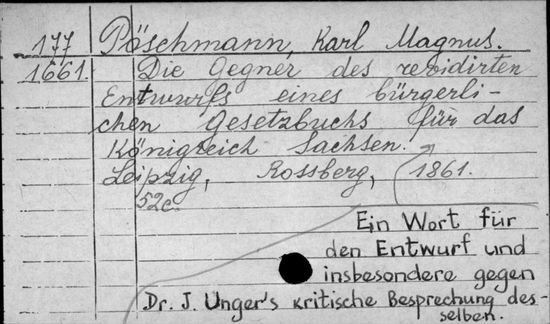 177 Pöschmann, Karl Magnus.
1661. Die Gegner des revidirten
Entwurfs eines bürgerli-
chen Gesetzbuchs für das
Königreich Sachsen.
Leipzig, Rossberg, 1861.
52c.
Ein Wort für
den Entwurf und
insbesondere gegen
Dr. J. Unger's kritische Besprechung des-
selben.